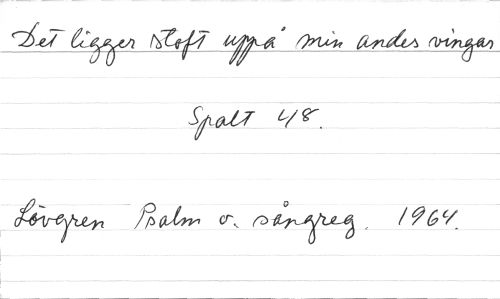 Det ligger stoft uppå min andes vingar
Spalt 48.
Lövgren Psalm o. sångreg. 1964.